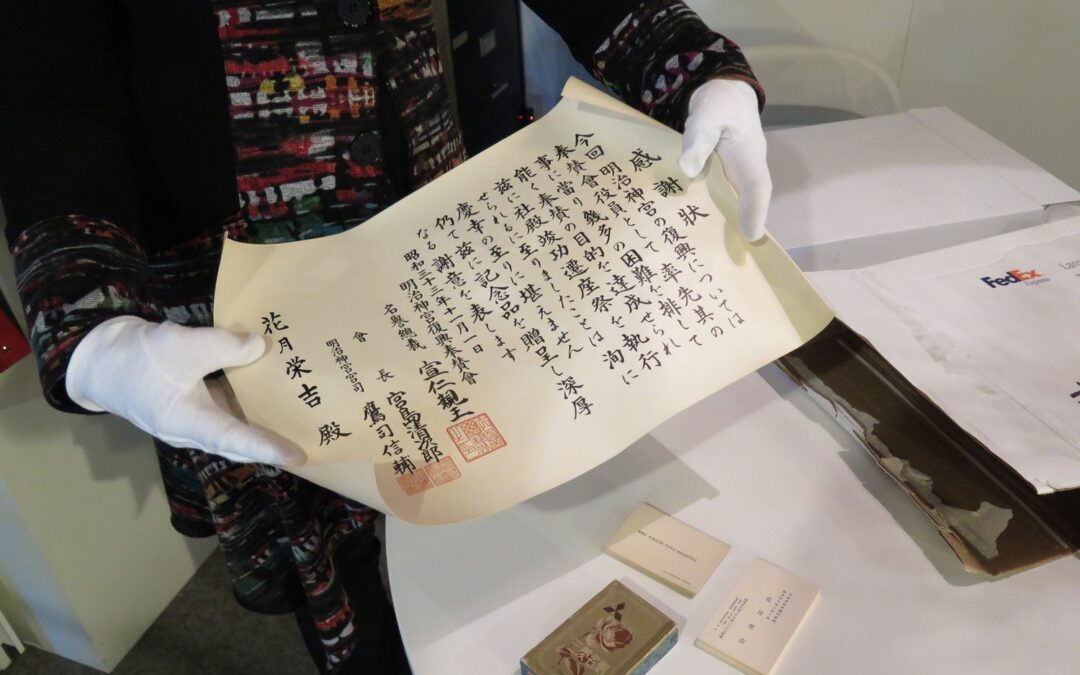 感謝狀
今回明治神宮の復興については
奉賛會役員として率先其の
事に當り幾多の困難を排し
能く奉賛の目的を達成せられ
茲に社殿竣功し遷座祭を執行
せられるに至りましたことは洵に
慶幸の至りに堪えません
仍て茲に記念品を贈呈し深厚
なる謝意を表します
昭和三十三年十一月一日
明治神宮復興奉賛會
名譽總裁 宣仁親王
會長 宮島清次郎
明治神宮宮司 鷹司信輔
花月栄吉 殿
FedEx
Express
MRS. TOYO KAGETSU